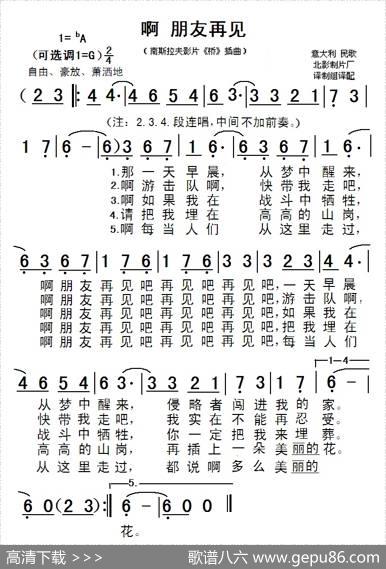 啊 朋友再见
1=ᵇA
(可选调1=G) 2/4
（南斯拉夫影片《桥》插曲）
意大利 民歌
北影制片厂
译制组译配
自由、豪放、萧洒地
( 2 3 : 4 4· | 4 6 5 4 | 6 3· | 3 2 | 1 7 3 |
(注：2.3.4.段连唱,中间不加前奏。)
1 7 | 6 - | 6) 3 6 7 | 1 7 6 | 3 6 7 | 1 7 6 |
1.那一天早晨， 从梦中醒来，
2.啊游击队啊， 快带我走吧，
3.啊如果我在 战斗中牺牲，
4.请把我埋在 高高的山岗，
5.啊每当人们 从这里走过，
6 3 6 7 | 1 7 6 | 1 7 6 | 3 3 | 3 2 3 | 4 4· |
啊朋友再见吧再见吧再见吧，一天早晨
啊朋友再见吧再见吧再见吧，游击队啊，
啊朋友再见吧再见吧再见吧，如果我在
啊朋友再见吧再见吧再见吧，把我埋在
啊朋友再见吧再见吧再见吧，每当人们
1-4
4 6 5 4 | 6 3· | 3 3 2 | 1 7 3 | 1 7 | 6 - |
从梦中醒来， 侵略者闯进我的家。
快带我走吧， 我实在不能再忍受。
战斗中牺牲， 你一定把我来埋葬。
高高的山岗， 再插上一朵美丽的花。
从这里走过， 都说啊多么美丽的
5.
6 0 (2 3 : 6 - | 6 0 0 0
花。
高清下载 >>>
歌谱八六 www.gepu86.com